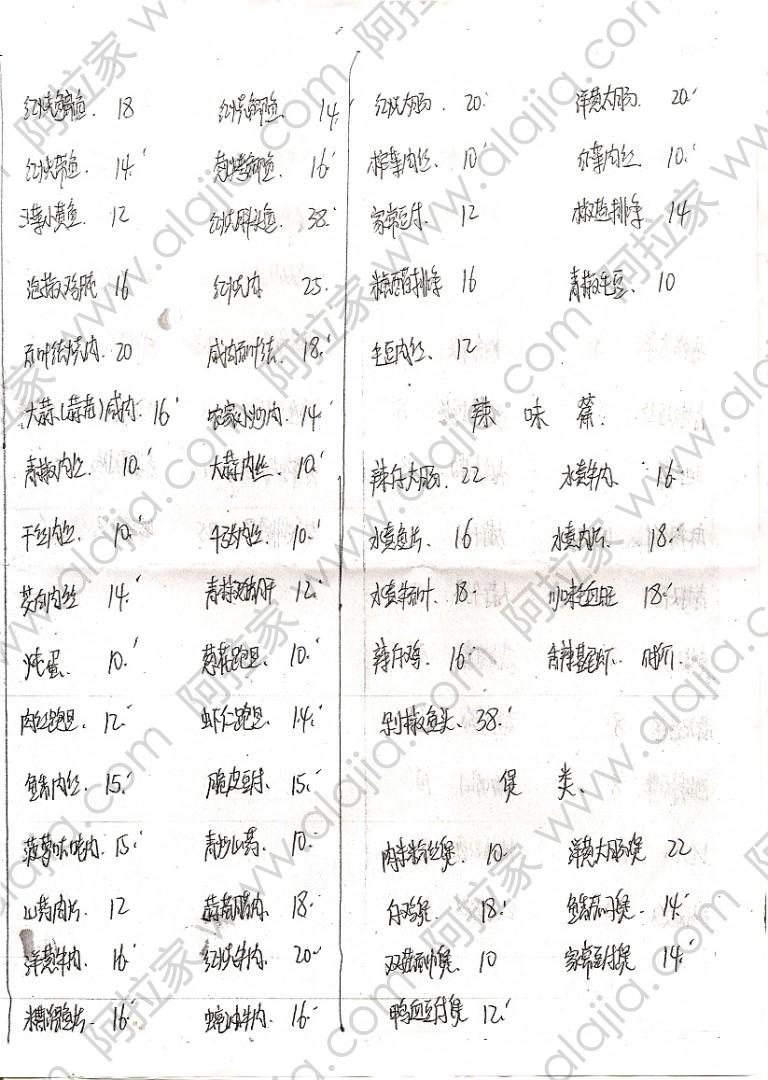 18 14.
14. 16.
12 红烧胖头鱼 38.
泡椒鸡胗 16 红烧肉 25.
百叶结烧肉. 20 咸肉百叶结. 18.
大蒜(蒜苗)咸肉. 16 农家小炒肉. 14
青椒肉丝. 10. 大蒜肉丝. 10.
干丝肉丝. 10. 10.
茭白肉丝 14. 12.
炖蛋. 10. 葱花跑蛋. 10.
肉丝跑蛋. 12. 虾仁跑蛋. 14.
鱼香肉丝. 15. 脆皮豆腐. 15.
菠萝咕咾肉. 15. 青炒山药. 10.
山药肉片. 12 蒜苗腊肉. 18.
洋葱牛肉. 16. 红烧牛肉. 20
糟溜鱼片. 16. 蚝油牛肉. 16.
红烧大肠. 20. 洋葱大肠. 20.
榨菜肉丝. 10. 10.
家常豆腐. 12 椒盐排条 14
糖醋排条 16 青椒毛豆. 10
毛豆肉丝. 12
辣 味 篇.
辣仔大肠. 22 水煮牛肉. 16.
水煮鱼片. 16 水煮肉片. 18.
水煮牛百叶. 18. 川味毛血旺 18.
辣仔鸡. 16. 香辣基围虾. 时价.
剁椒鱼头. 38.
煲 类.
肉末粉丝煲. 10. 洋葱大肠煲 22
仔鸡煲. 18. 鱼香茄子煲. 14.
双菇 煲. 10 家常豆腐煲. 14.
鸭血豆腐煲. 12.
阿拉家 www.alajia.com